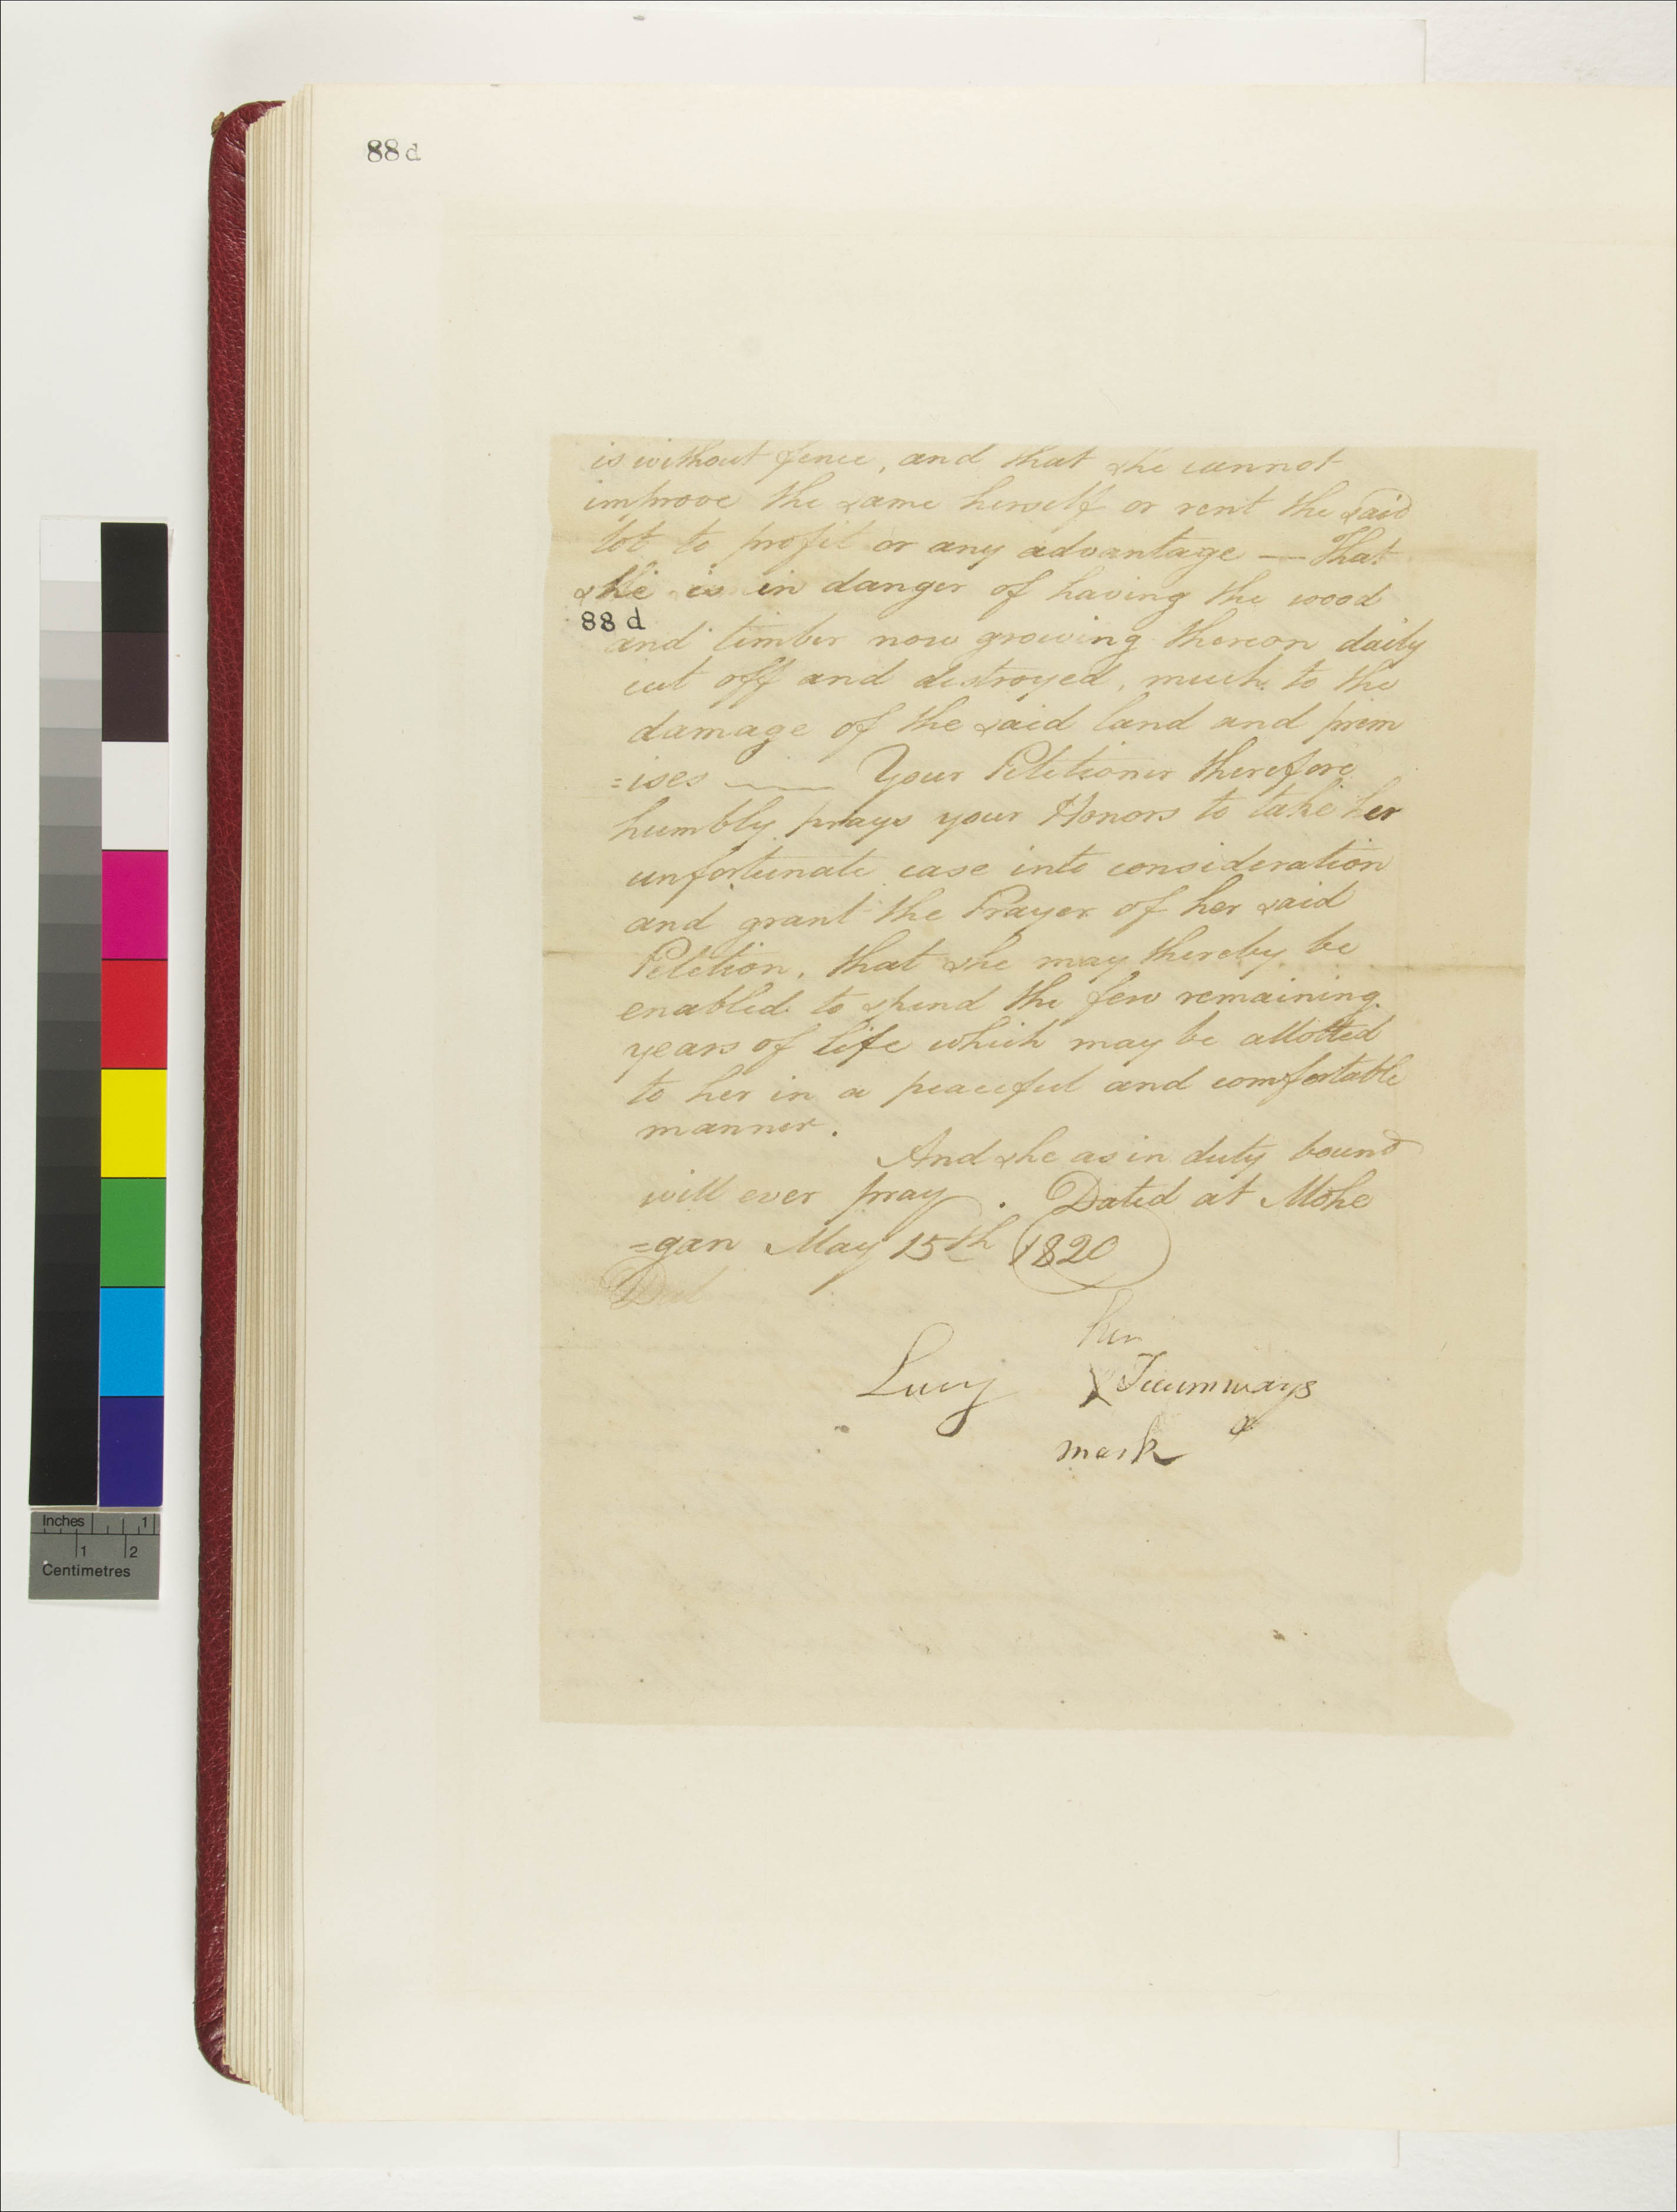 88 d
is without fence, and that she cannot
improve the same herself or rent the said
lot to profit or any advantage — That
she is in danger of having the wood
88 d
and timber now growing thereon daily
cut off and destroyed, much to the
damage of the said land and prem
=ises — Your Petitioner therefore
humbly prays your Honors to take her
unfortunate case into consideration
and grant the Prayer of her said
Petition, that she may thereby be
enabled to spend the few remaining
years of life which may be allotted
to her in a peaceful and comfortable
manner.
And she as in duty bound
will ever pray. Dated at Mohe
=gan May 15th 1820
her
Lucy X Tecumways
mark
Inches 1
1 2
Centimetres